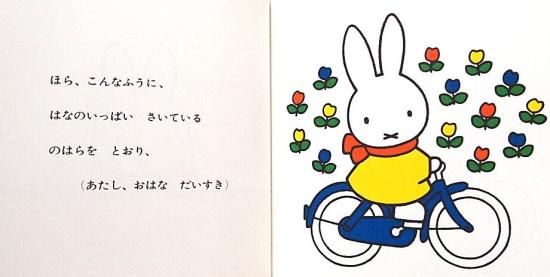 ほら、こんなふうに、
はなのいっぱい　さいている
のはらを　とおり、
（あたし、おはな　だいすき）